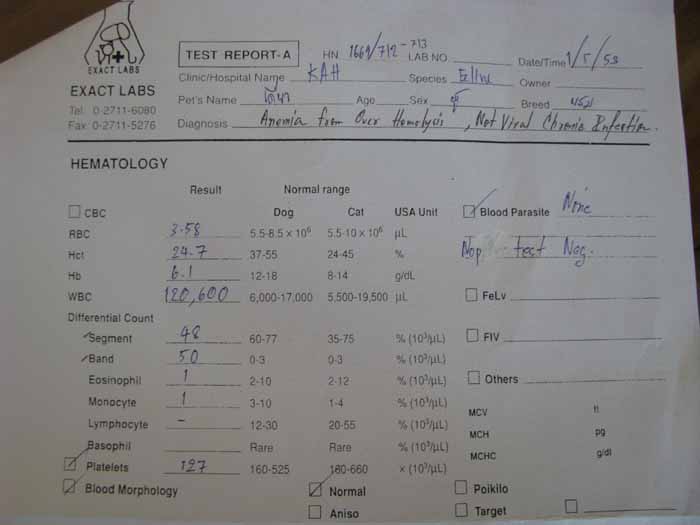 EXACT LABS
EXACT LABS
Tel. 0-2711-6080
Fax 0-2711-5276
TEST REPORT-A HN 1669/712-713 LAB NO. Date/Time 1/5/53
Clinic/Hospital Name KAH Species Owner
Pet's Name Age Sex Breed
Diagnosis Anemia from Over Hemolysis, Not Viral Chronic Infection.
HEMATOLOGY
Result Normal range
CBC Dog Cat USA Unit Blood Parasite None
RBC 3.58 5.5-8.5 x 10⁶ 5.5-10 x 10⁶ µL
Hct 24.7 37-55 24-45 % test Neg.
Hb 6.1 12-18 8-14 g/dL
WBC 120,600 6,000-17,000 5,500-19,500 µL FeLv
Differential Count
Segment 48 60-77 35-75 % (10³/µL) FIV
Band 50 0-3 0-3 % (10³/µL)
Eosinophil 1 2-10 2-12 % (10³/µL) Others
Monocyte 1 3-10 1-4 % (10³/µL) MCV fl
Lymphocyte - 12-30 20-55 % (10³/µL) MCH pg
Basophil Rare Rare % (10³/µL) MCHC g/dl
Platelets 127 160-525 160-660 x (10³/µL)
Blood Morphology Normal Poikilo
Aniso Target